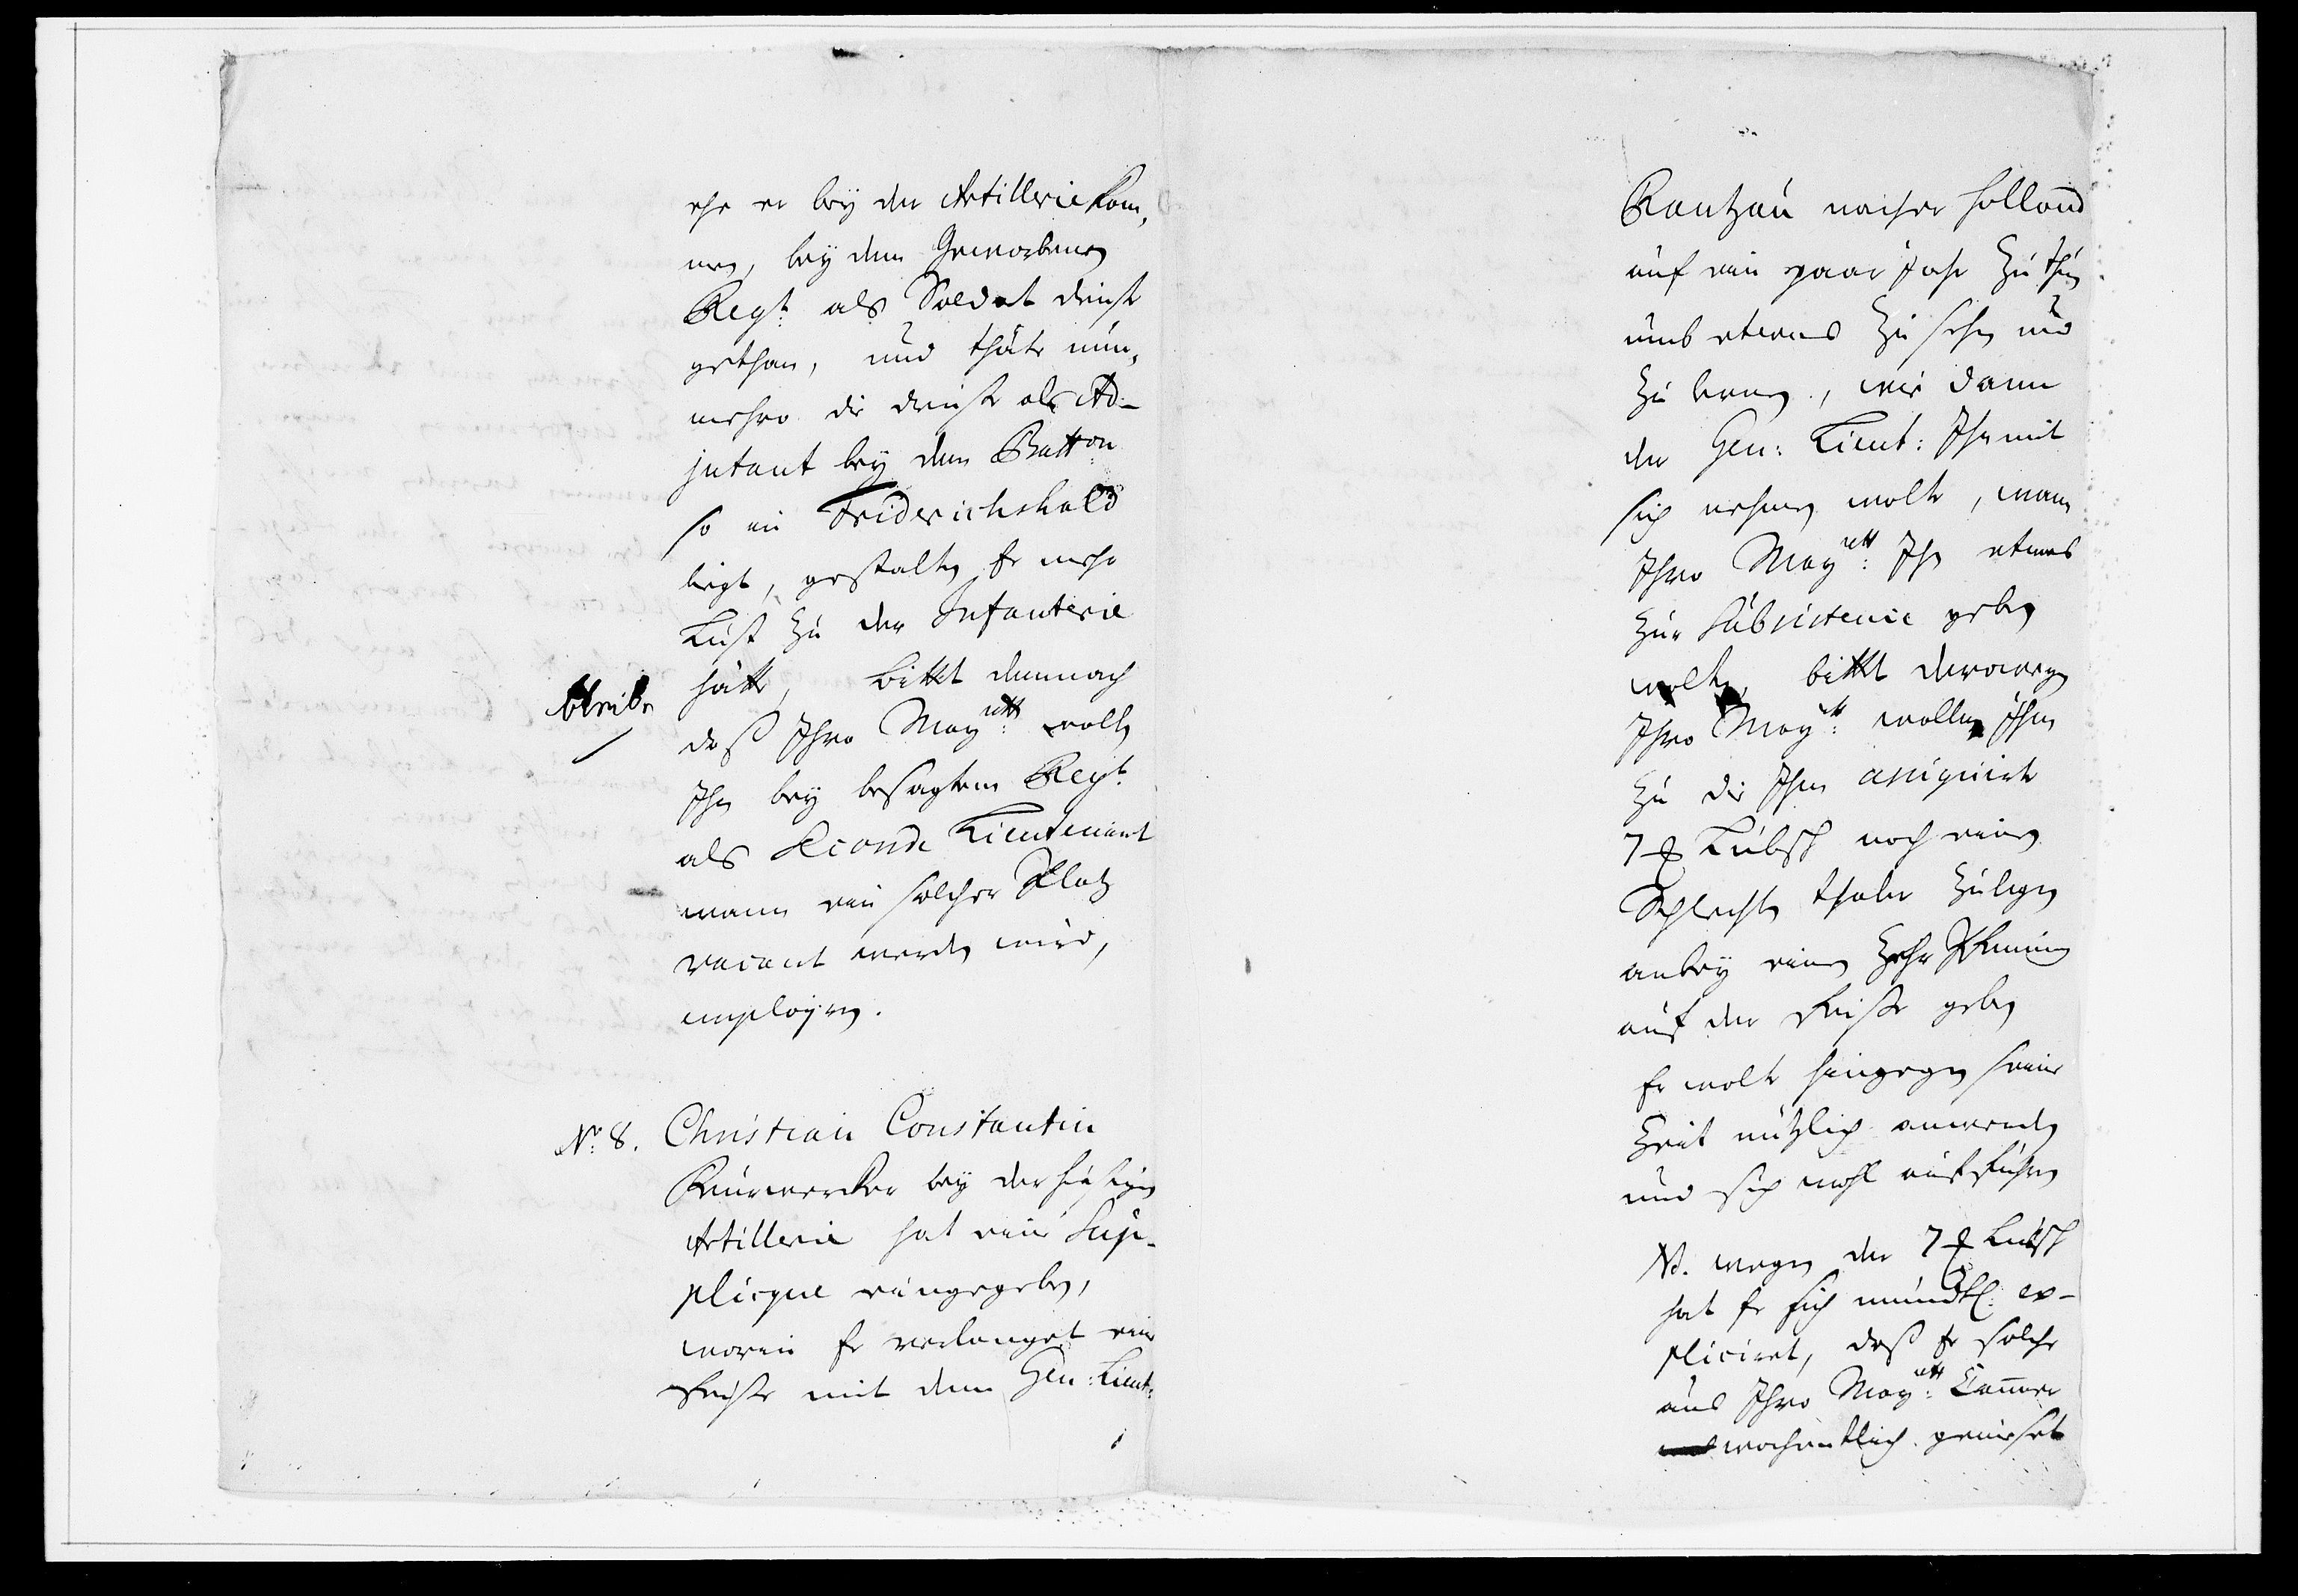 ehe er bey der Artillerie kom,
men, bey dem Geworbenen
Regt: als Soldat dienst
gethan, und thäte nun,
mehro die dienste als Ad-
jutant bey dem Batt:on
so in Friderichshald
liegt, gestalten Er mehr
Lust zu der Infanterie
hätte, bittet demnach
bleibe
daß Ihro May:ett wolle
Ihn bey besagtem Regt:
als Seconde Lieutenant
wann ein solcher Platz
vacant werden wird,
employren.
No: 8. Christian Constantin
bey der hiesigen
Artillerie hat eine Sup-
plicque eingegeben,
worin Er verlanget eine
Reise mit dem Gen: Lieut:
Rantzau nacher Holland
auf ein paar Jahr zu thun
umb etwas zu sehen und
zu lernen, wie dann
der Gen: Lieut: Ihn mit
sich nehmen wolte, wann
Ihro May:ett Ihn etwas
zur Subsistence geben
wolten, bittet derowegen
Ihro May:ett wollen Ihm
zu die Ihm assignirte
7 ꝶ Lübsch noch einen
Schlechten thaler zulegen
anbey einen Zehr Pfenning
auf der Reise geben
Er wolte hingegen seine
Zeit nützlich anwenden
und sich wohl aufführen
NB. wegen der 7 ꝶ Lübsch
hat Er sich mündtl: ex-
pliciret, daß Er solche
aus Ihro May:ett Cammer
wochentlich genießet